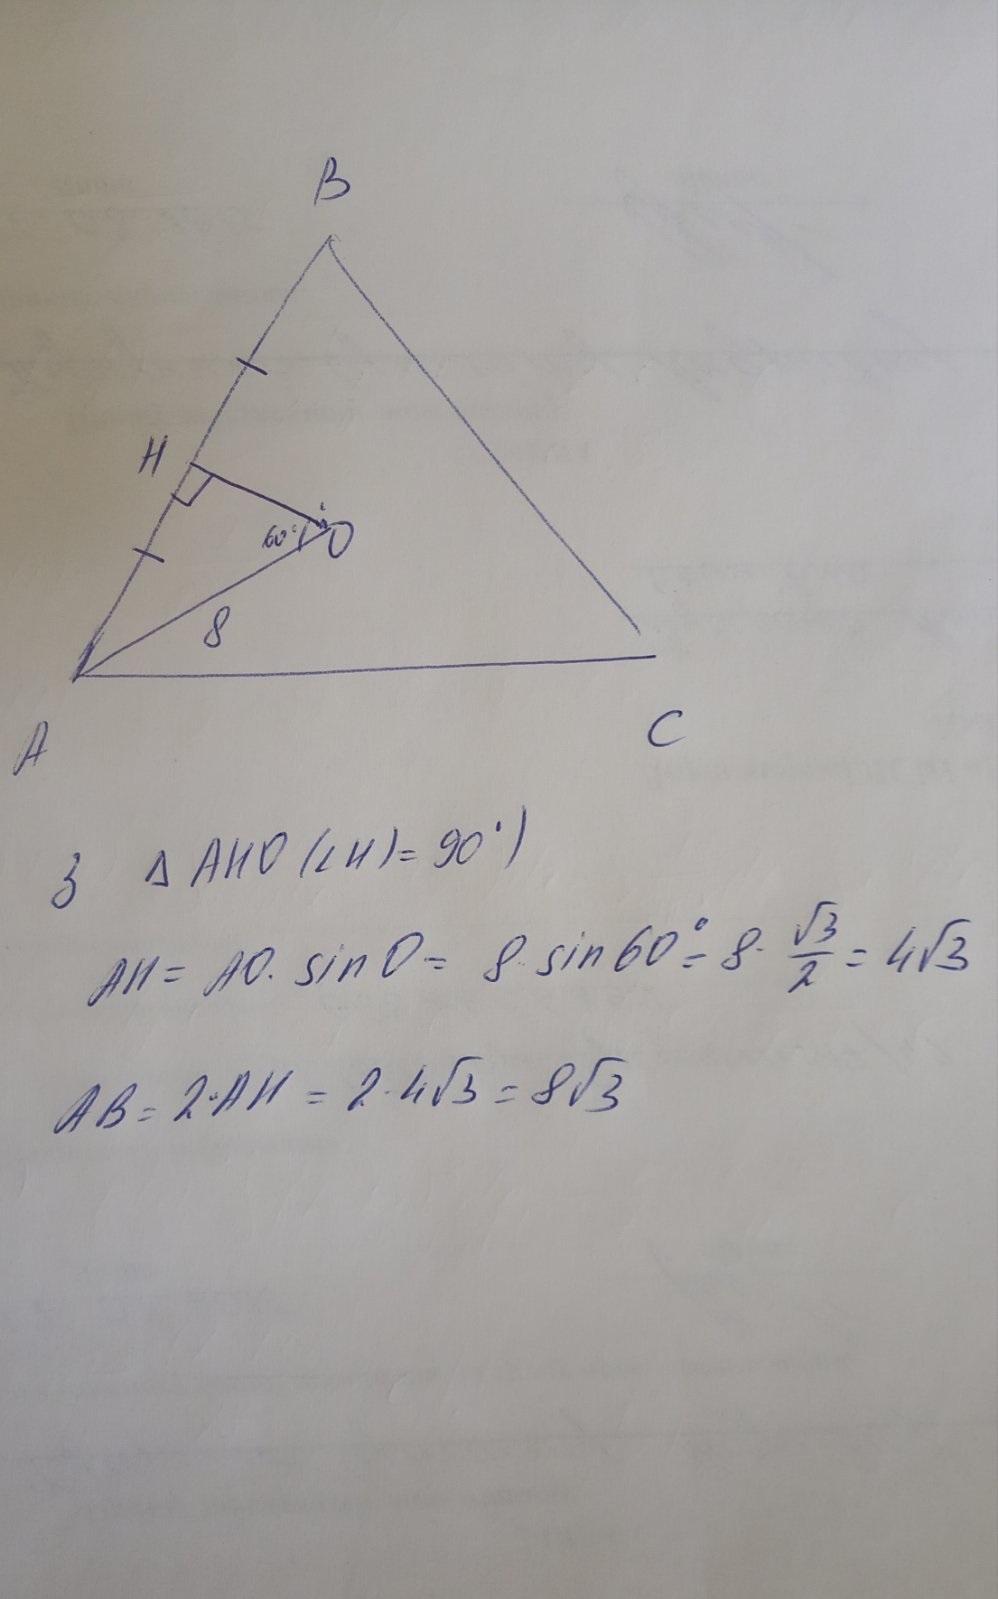 B
H
60°
O
8
A
C
З Δ AHO (∠H)= 90°)
AH = AO · sin O = 8 · sin 60° = 8 · √3/2 = 4√3
AB = 2·AH = 2·4√3 = 8√3